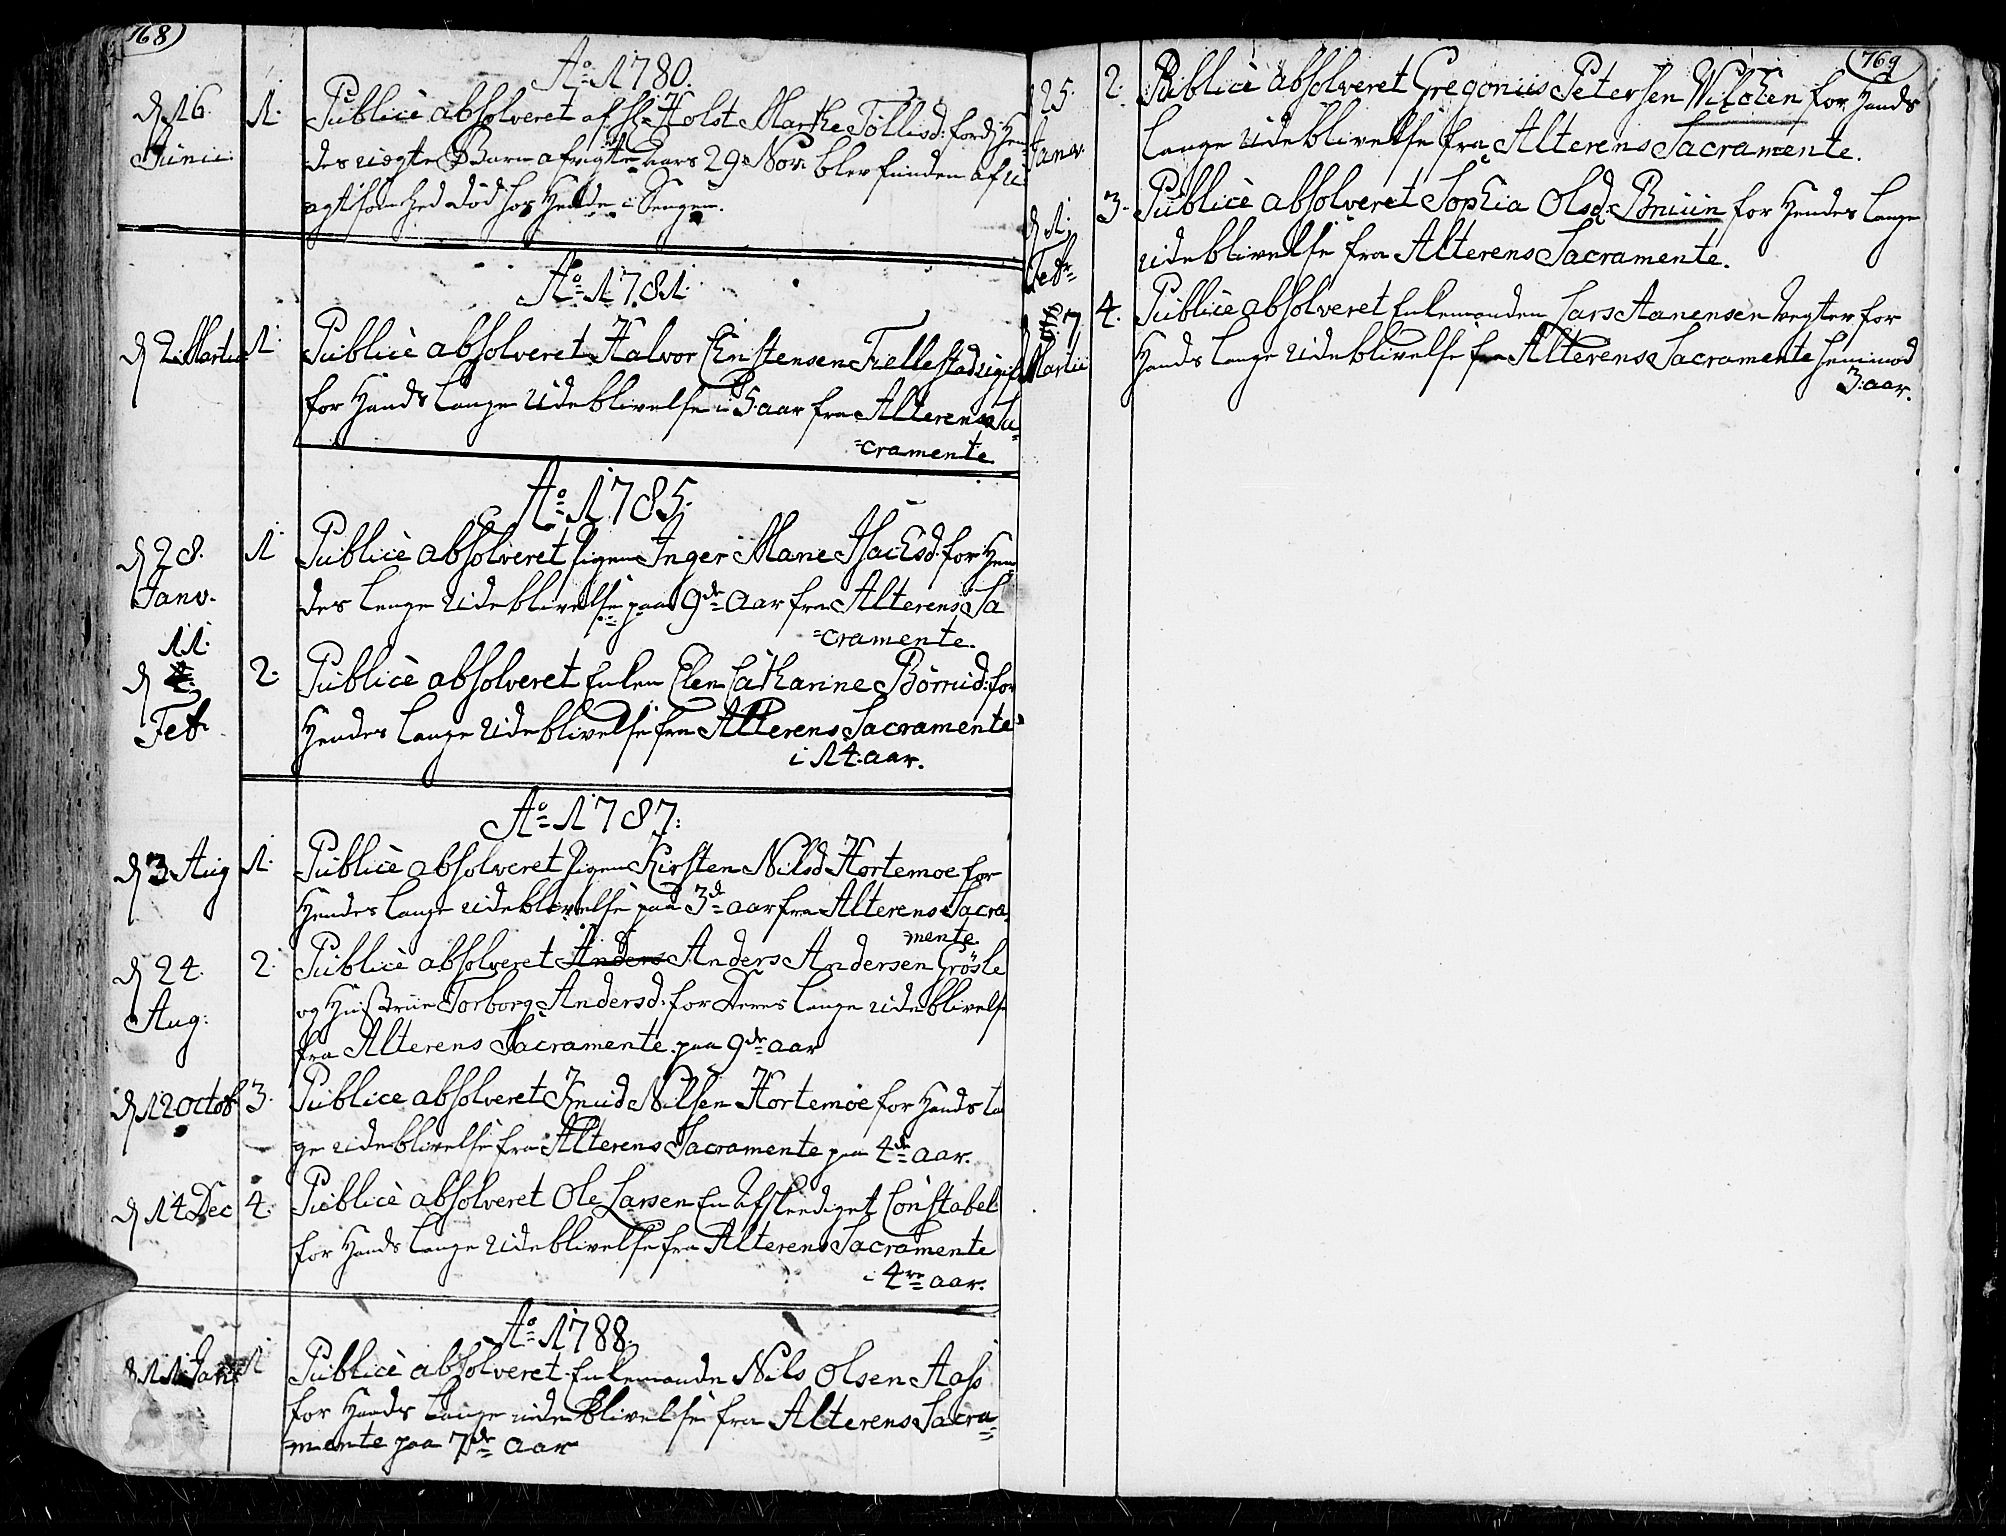 768
Ao 1780.
d 16. Junii 1. Publicè absolveret af Hr Holst Marthe Tøllisd: fordi Hen
des uægte Barn afvigte Aars 29 Nov: blev funden af u
agtsomhed død hos Hende i Sengen.
Ao 1781.
d 2 Martii 1. Publicè absolveret Halvor Christensen
for Hands lange Udeblivelse i 5 aar fra Alterens Sa
=cramente
Ao 1785.
d 28. Janv. 1 Publicè absolveret Pigen Inger Marie Isachsd: for Hen
des lange Udeblivelse paa 9de Aar fra Alterens Sa
=cramente.
d 11. Feb. 2. Publicè absolveret Enken Elen Catharine for
Hendes lange Udeblivelse fra Alterens Sacramente
i 14. aar.
Ao 1787.
d 3 Aug 1. Publicè absolveret Pigen Kirsten Nilsd Hortemoe for
Hendes lange udeblivelse paa 3de aar fra Alterens Sacra
mente
d 24. Aug: 2. Publicè absolveret Anders Anders Andersen Grösle
og Hustrue Torborg Andersd: for Deres lange udeblivelse
fra Alterens Sacramente paa 9de aar
d 12 Octob 3. Publice absolveret Knud Nilsen Hortemoe for Hands lan
ge udeblivelse fra Alterens Sacramente paa 4de aar.
d 14 Dec 4. Publicè absolveret Ole Larsen En Afskediget Constabel
for Hands lange Udeblivelse fra Alterens Sacramente
i 4re aar.
Ao 1788.
d 11 Janv 1 Publicè absolveret Enkemanden Nils Olsen Aass
for Hands lange udeblivelse fra Alterens Sacra=
mente paa 7de aar
769
d 25. Janv. 2. Publicè absolveret Gregorius Petersen Vilchen for Hands
lange Udeblivelse fra Alterens Sacramente.
d 1. Feb. 3. Publicè absolveret Sophia Olsd: Bruun for Hendes lange
udeblivelse fra Alterens Sacramente.
d 7 Martii 4. Publicè absolveret Enkemanden Lars Aanensen Vegter for
Hands lange Udeblivelse fra Alterens Sacramente henimod
3. aar.